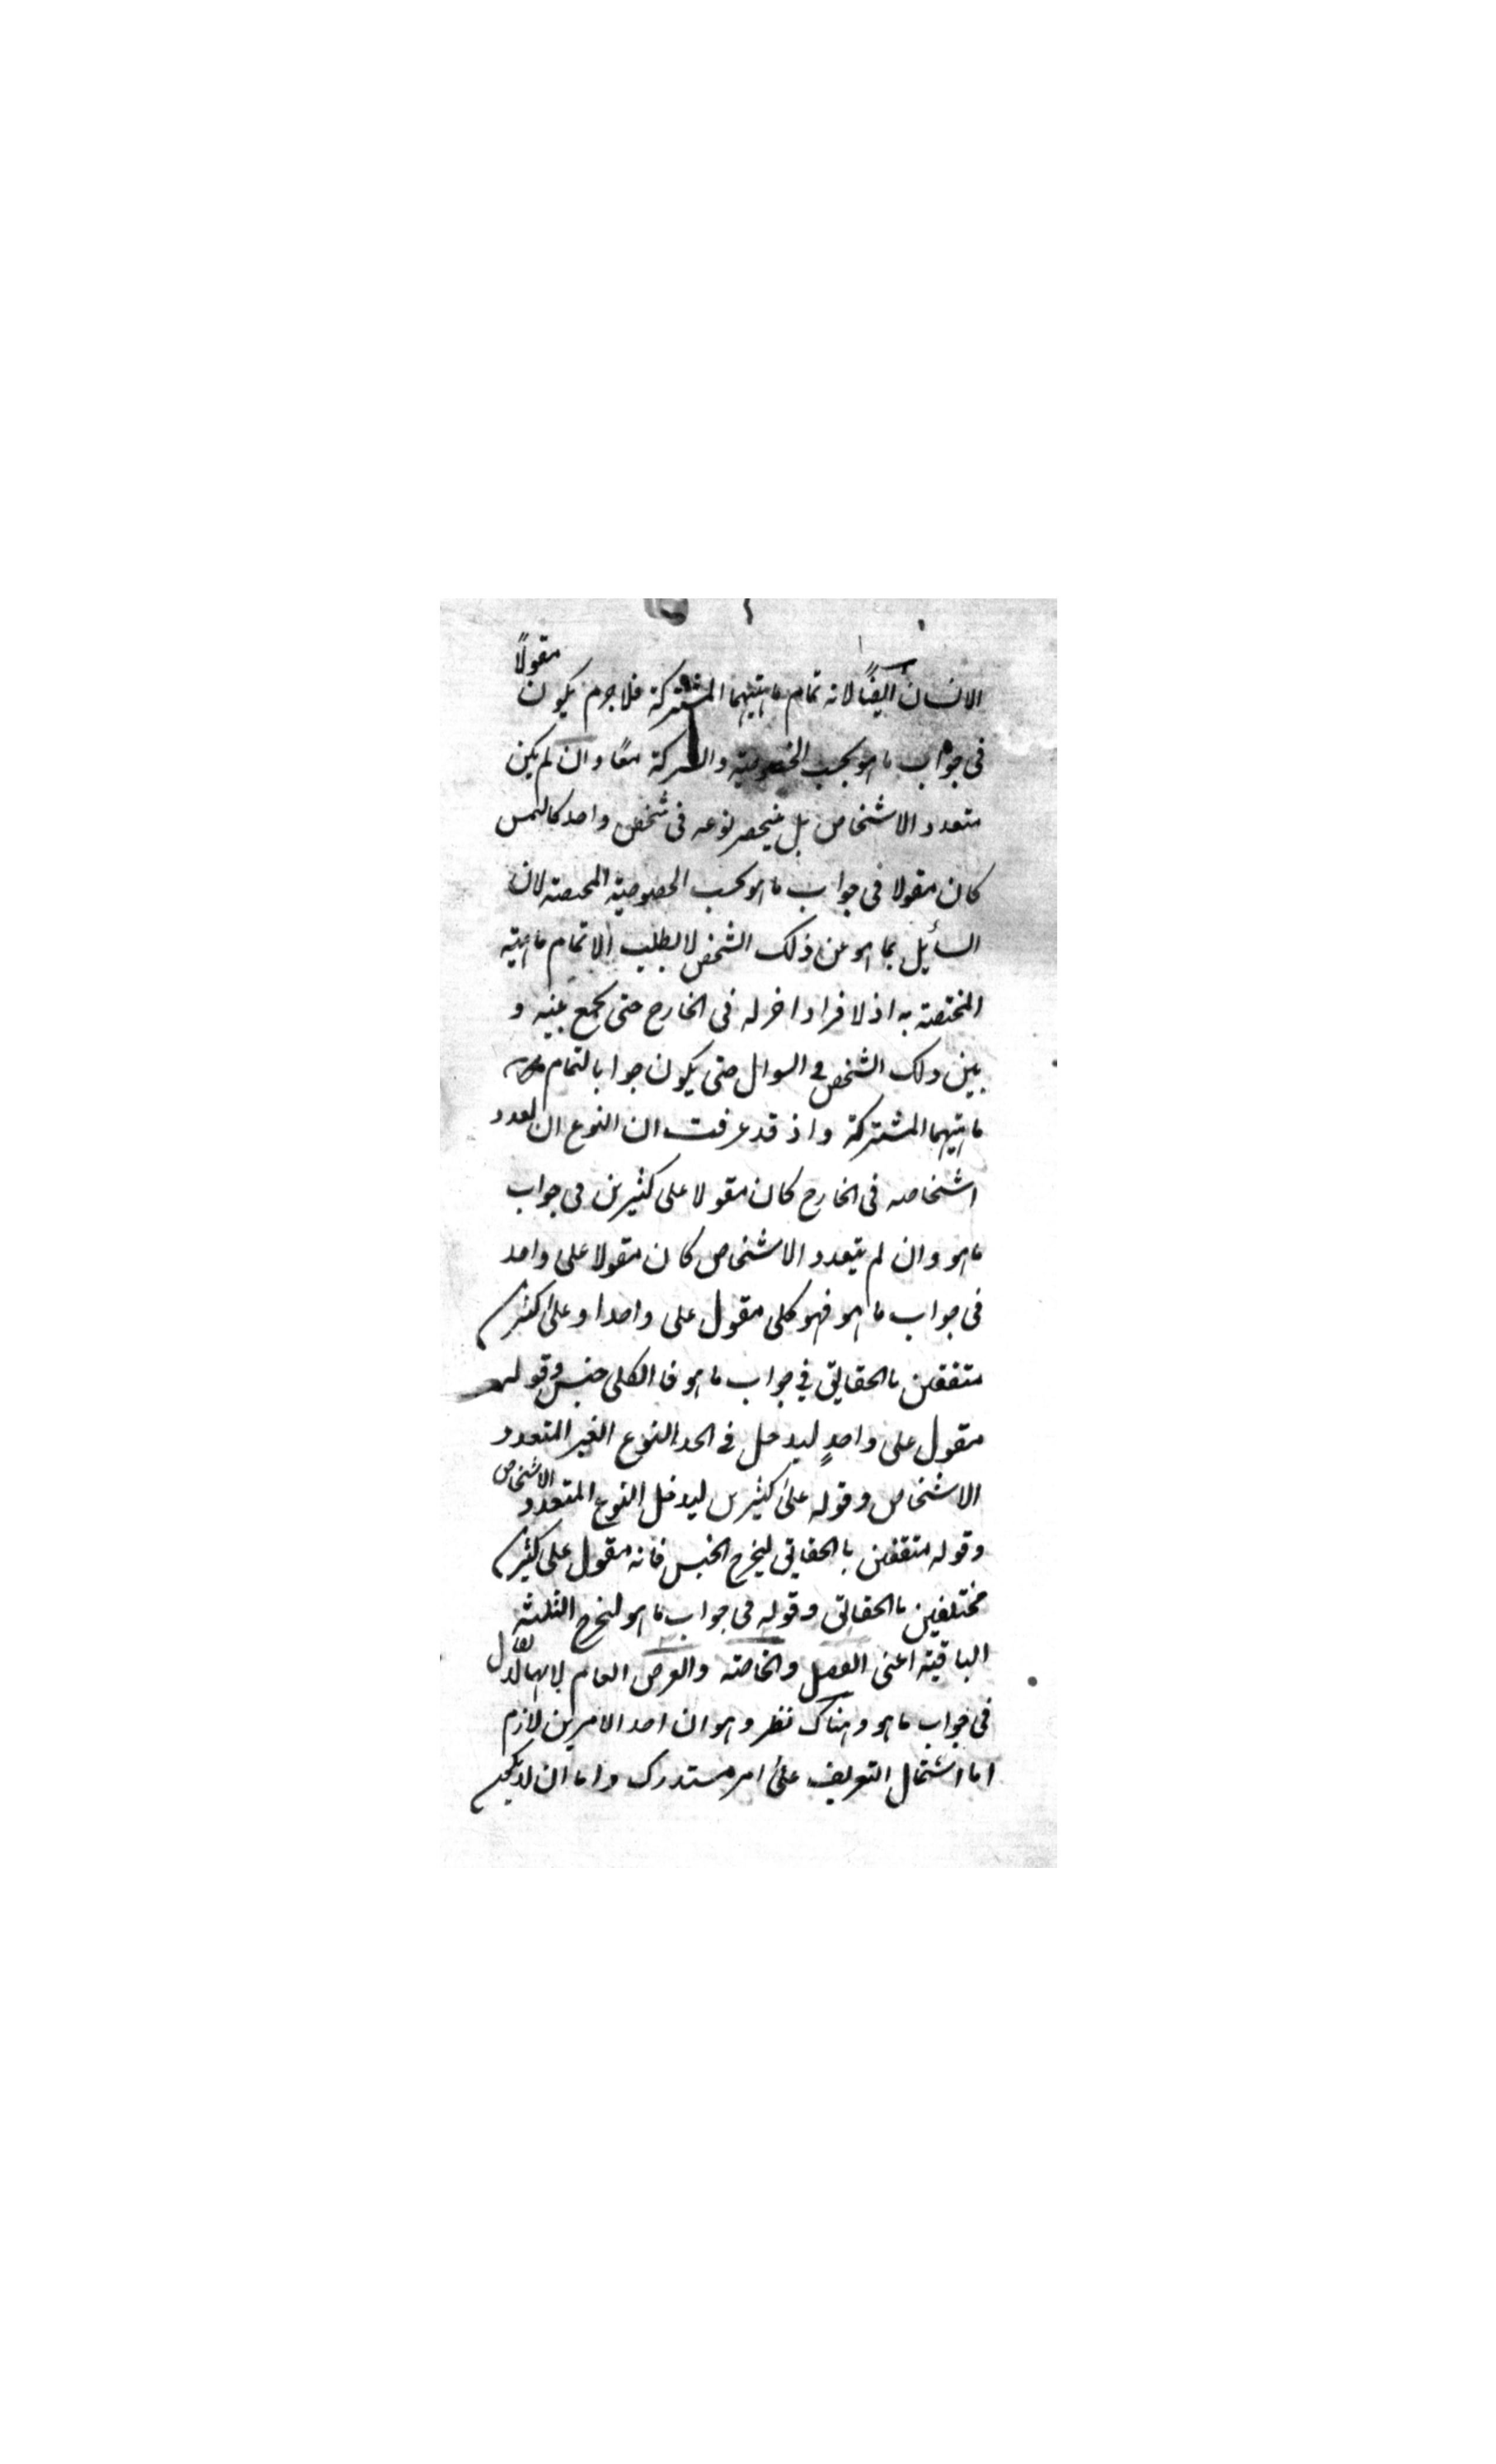 الانسان ايضًا لانه تمام ماهيتهما المشتركة فلاجرم يكون مقولًا
فى جواب ماهو بحسب الخصوصية والشركة معًا وان لم يكن
متعدد الاشخاص بل ينحصر نوعه فى شخص واحد كالشمس
كان مقولا فى جواب ماهو بحسب الخصوصية المحضة لان
السأيل بما هو عن ذلك الشخص لا يطلب الا تمام ماهيته
المختصة به اذ لا فراد اخر له فى الخارج حتى يجمع بينه و
بين ذلك الشخص فى السوال حتى يكون جوابا لتمام
ماهيتهما المشتركة واذ قد عرفت ان النوع ان تعدد
اشخاصه فى الخارج كان مقولا على كثيرين فى جواب
ماهو وان لم يتعدد الاشخاص كان مقولا على واحد
فى جواب ماهو فهو كلى مقول على واحد او على كثيرين
متفقين بالحقايق في جواب ماهو فالكلى جنس وقوله
مقول على واحدٍ ليدخل فى الحد النوع الغير المتعدد
الاشخاص وقوله على كثيرين ليدخل النوع المتعدد الاشخاص
وقوله متفقين بالحقايق ليخرج الجنس فانه مقول على كثيرين
مختلفين بالحقايق وقوله فى جواب ماهو ليخرج الثلثة
الباقية اعنى الفصل والخاصة والعرض العام لانها لا يقال
فى جواب ماهو وهناك نظر وهو ان احد الامرين لازم
اما اشتمال التعريف على امر مستدرك واما ان لا يكون